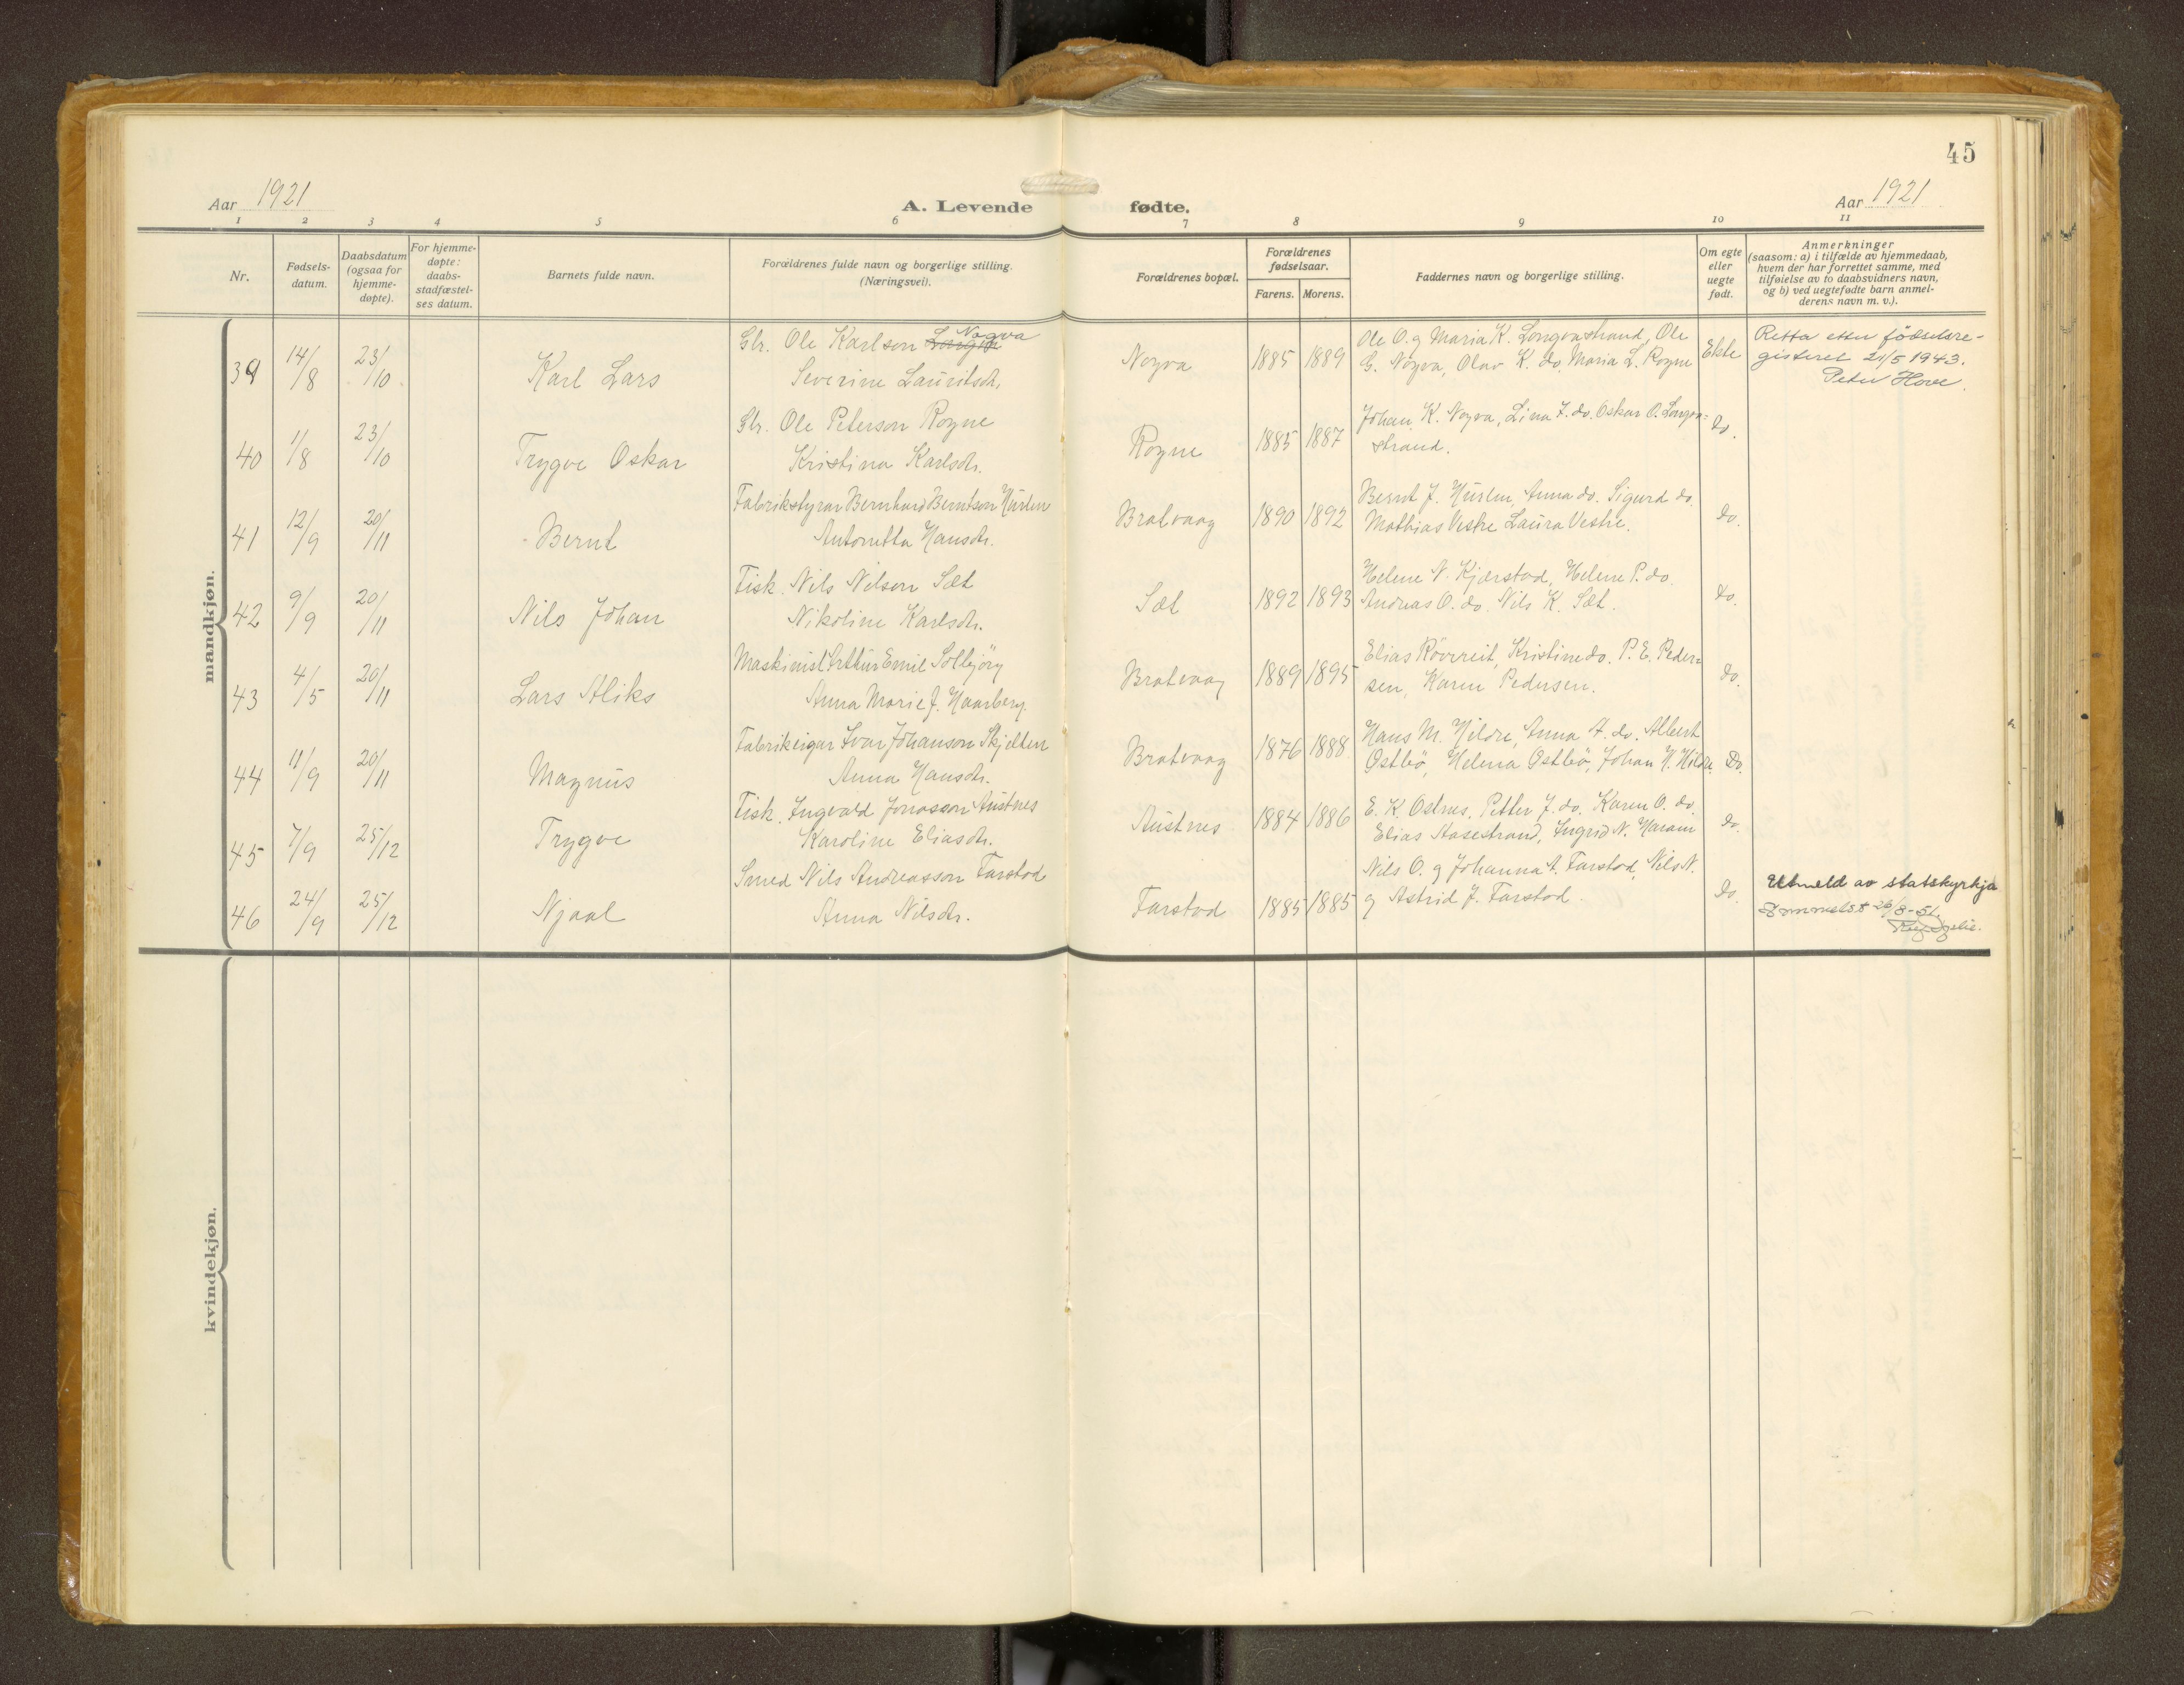 45
Aar 1921
A. Levende fødte.
Aar 1921
1 2 3 4 5 6 7 8 9 10 11
Nr.
Fødsels-
datum.
Daabsdatum
(ogsaa for
hjemme-
døpte).
For hjemme-
døpte:
daabs-
stadfæstel-
ses datum.
Barnets fulde navn.
Forældrenes fulde navn og borgerlige stilling.
(Næringsvei).
Forældrenes bopæl.
Forældrenes
fødselsaar.
Farens. Morens.
Faddernes navn og borgerlige stilling.
Om egte
eller
uegte
født.
Anmerkninger
(saasom: a) i tilfælde av hjemmedaab,
hvem der har forrettet samme, med
tilføielse av to daabsvidners navn,
og b) ved uegtefødte barn anmel-
derens navn m. v.).
mandkjøn.
39 14/8 23/10 Karl Lars
Gbr. Ole Karlson Nogva
Severine Lauritsdr.
Nogva 1885 1889
Ole O. g Maria K. Longvastrand, Ole
G. Nogva, Olav K. do. Maria L. Rogne
Ekte
Retta etter födselsre-
gisteret 21/5 1943.
Peter Hove.
40 1/8 23/10 Trygve Oskar
Gbr. Ole Peterson Rogne
Kristina Karlsdr.
Rogne 1885 1887
Johan K. Nogva, Lina J. do. Oskar O. Longva=
strand.
do.
41 12/9 20/11 Bernt
Fabrikstyrar Bernhard Berntson Hurlen
Antonetta Hansdr.
Bratvaag 1890 1892
Bernt J. Hurlen, Anna do. Sigurd do.
Mathias Vestre Laura Vestre.
do.
42 9/9 20/11 Nils Johan
Fisk. Nils Nilson Sæt
Nikoline Karlsdr.
Sæt 1892 1893
Helene N. Kjærstad, Helene P. do.
Andreas O. do. Nils K. Sæt.
do.
43 4/5 20/11 Lars Aliks
Maskinist Arthur Emil Solbjörg
Anna Marie J. Haarberg.
Bratvaag 1889 1895
Elias Rövereit, Kristine do. P. E. Peder=
sen, Karen Pedersen.
do.
44 11/9 20/11 Magnus
Fabrikeigar Ivar Johanson Skjelten
Anna Hansdr.
Bratvaag 1876 1888
Hans M. Hildre, Anna A. do. Albert
Östbö, Helena Ostbö, Johan H. Hildre.
Do.
45 7/9 25/12 Trygve
Fisk. Ingvald Jonasson Austnes
Karoline Eliasdr.
Austnes 1884 1886
E. K. Ostnes, Petter J. do. Karen O. do.
Elias Aasestrand, Ingrid N. Haram
do.
46 24/9 25/12 Njaal
Smed Nils Andreasson Farstad
Anna Nilsdr.
Farstad 1885 1885
Nils O. g Johanna A. Farstad, Nils N.
g Astrid J. Farstad.
do.
Utmeld av statskyrkja
26/8-51.
kvindekjøn.